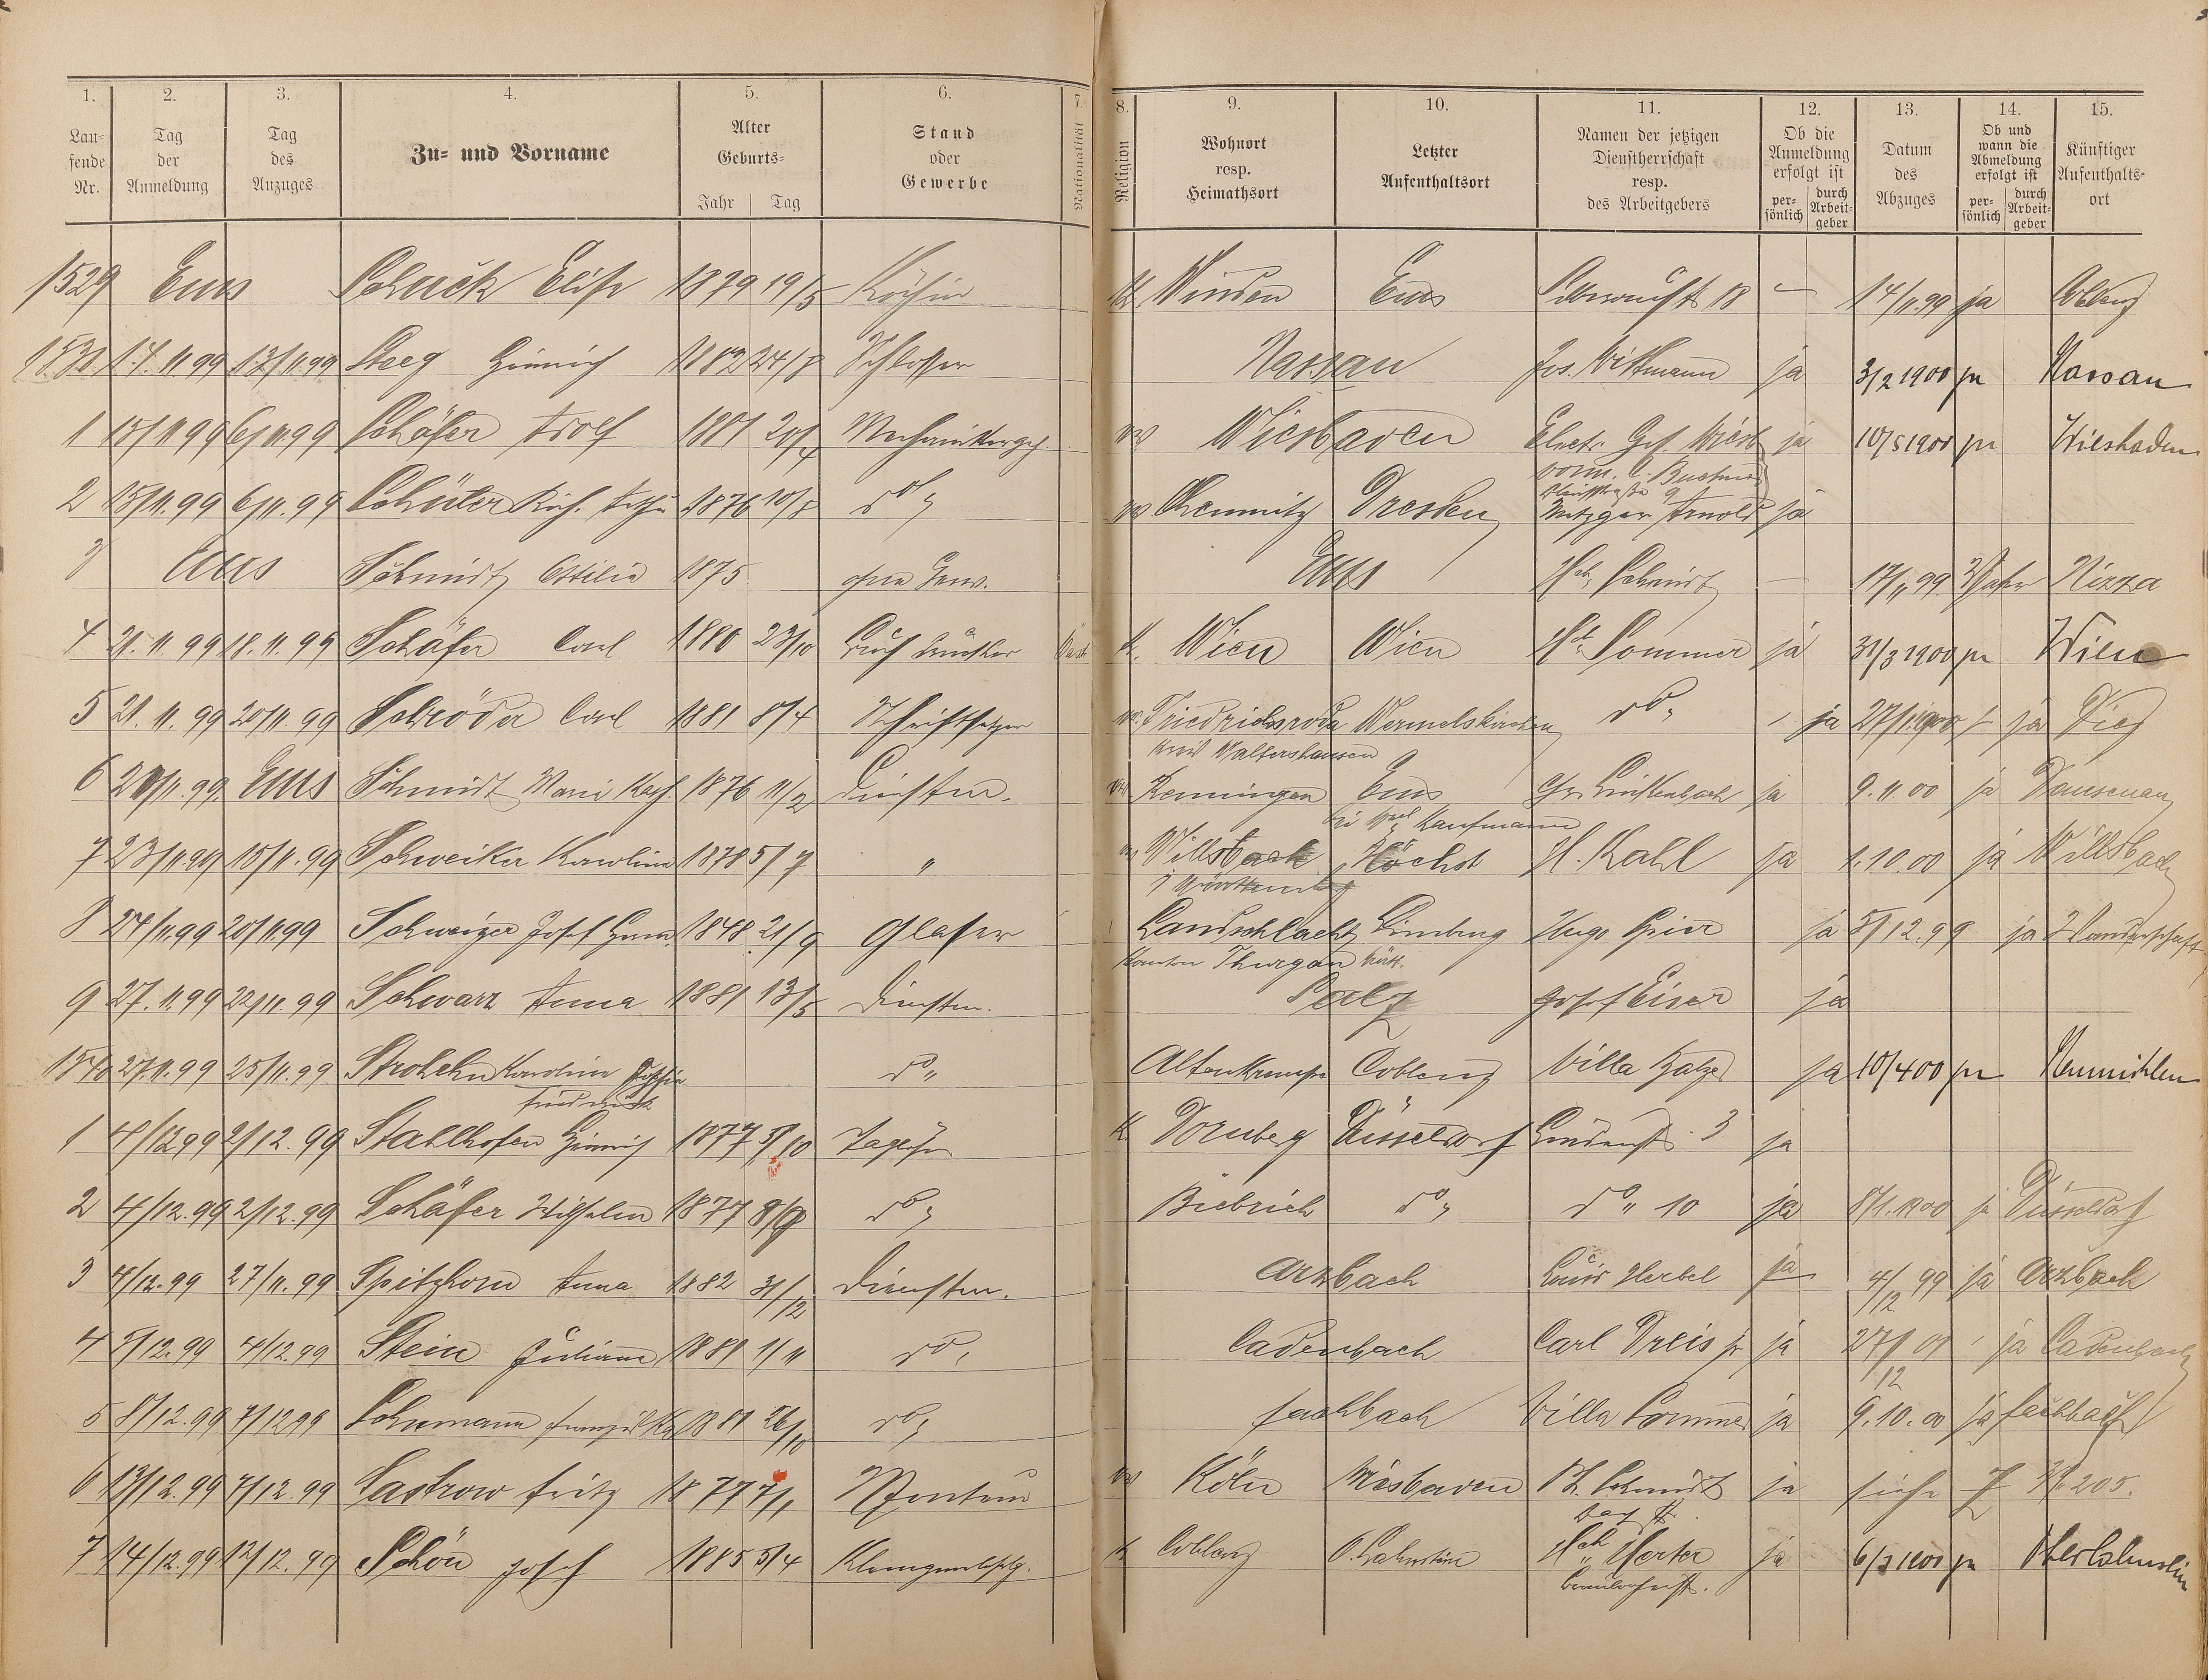 1. 2. 3. 4. 5. 6. 7. 8. 9. 10. 11. 12. 13. 14. 15.
Lau=
fende
Nr.
Tag
der
Anmeldung
Tag
des
Anzuges
Zu= und Vorname
Alter
Geburts=
Jahr Tag
Stand
oder
Gewerbe
Nationalität
Religion
Wohnort
resp.
Heimathsort
Letzter
Aufenthaltsort
Namen der jetzigen
Dienstherrschaft
resp.
des Arbeitgebers
Ob die
Anmeldung
erfolgt ist
per=
sönlich
durch
Arbeit=
geber
Datum
des
Abzuges
Ob und
wann die
Abmeldung
erfolgt ist
per=
sönlich
durch
Arbeit=
geber
Künftiger
Aufenthalts=
ort
1529 Ems Schuck Elise 1879 19/5 Köchin K. Winden Ems 18 — 14/11.99 ja Coblenz
1530 14.11.99 13/11.99 Steeg Heinrich 1882 24/8 Schlosser Nassau Jos. Wittmann ja 3/2 1900 ja Nassau
1 15/11 99 6/11.99 Schäfer Adolf 1881 20/4 Mechanikergeh. Wiesbaden Electr. Ges. Wiesb. ja 10/5 1900 ja Wiesbaden
vorm. C. Buchner
2 15/11.99 6/11.99 Schüler Rich. 1876 10/8 do Chemnitz Dresden Metzger Arnold ja
3 Ems Schmidt Ottilie 1875 ohne Gew. Ems Schmidt — 17/11 99 Nizza
4 21.11.99 18.11.99 Schäfer Carl 1880 23/10 Buchdrucker K. Wien Wien Hch Sommer ja 31/3 1900 ja Wien
5 21.11.99 20/11.99 Schröder Carl 1881 8/4 Schriftsetzer Friedrichroda Wermelskirchen do ja 27/1.1900 ja Diez
Kreis Waltershausen
6 20/11.99 Ems Schmidt Marie 1876 11/2 Dienstm. Kemmingen Ems Gr. Linkenbach ja 9.11.00 ja Dausenau
bei Kaufmann
7 23/11.99 15/11.99 Schweiker Karoline 1878 5/7 " Willsbach Höchst H. Kahl ja 1.10.00 ja Willsbach
i Württemberg
8 24/11.99 20/11.99 Schweizer Josef 1848 21/9 Glaser Landschlacht Limburg Hugo ja 5/12.99 ja Wanderschaft
Kanton Thurgau
9 27.11.99 22/11.99 Schwarz Anna 1881 13/5 Dienstm. Salz Josef Eiser ja
1540 27.11.99 25/11.99 Strohehn Karoline Sophie do Altenkrempe Coblenz Villa Balzer ja 10/4 00 ja Neumühlen
Friederike
1 4/12 99 2/12.99 Stahlhofen Heinrich 1877 5/10 Taglöhn K Dornberg Düsseldorf 3 ja
2 4/12.99 2/12.99 Schäfer Wilhelm 1877 8/9 do Biebrich do do 10 ja 8/1.1900 ja Düsseldorf
3 4/12.99 27/11.99 Spitzhorn Anna 1882 31/12 Dienstm. Arzbach Louis Herbel ja 4/12 99 ja Arzbach
4 5/12.99 4/12.99 Stein Juliane 1881 1/11 do Cadenbach Carl Dreis jr ja 27/12 01 ja Cadenbach
5 8/12.99 7/12 99 Schumann 1881 26/10 do Fachbach Villa Sommer ja 9.10.00 ja Fachbach
6 13/12.99 7/12.99 Sastrow Fritz 1877 7/1 Monteur Köln Wiesbaden Schmidt ja siehe J Nr 205.
7 14/12.99 12/12.99 Schön Josef 1885 5/4 K Coblenz O.Lahnstein Hch Herter ja 6/3 1900 ja Oberlahnstein